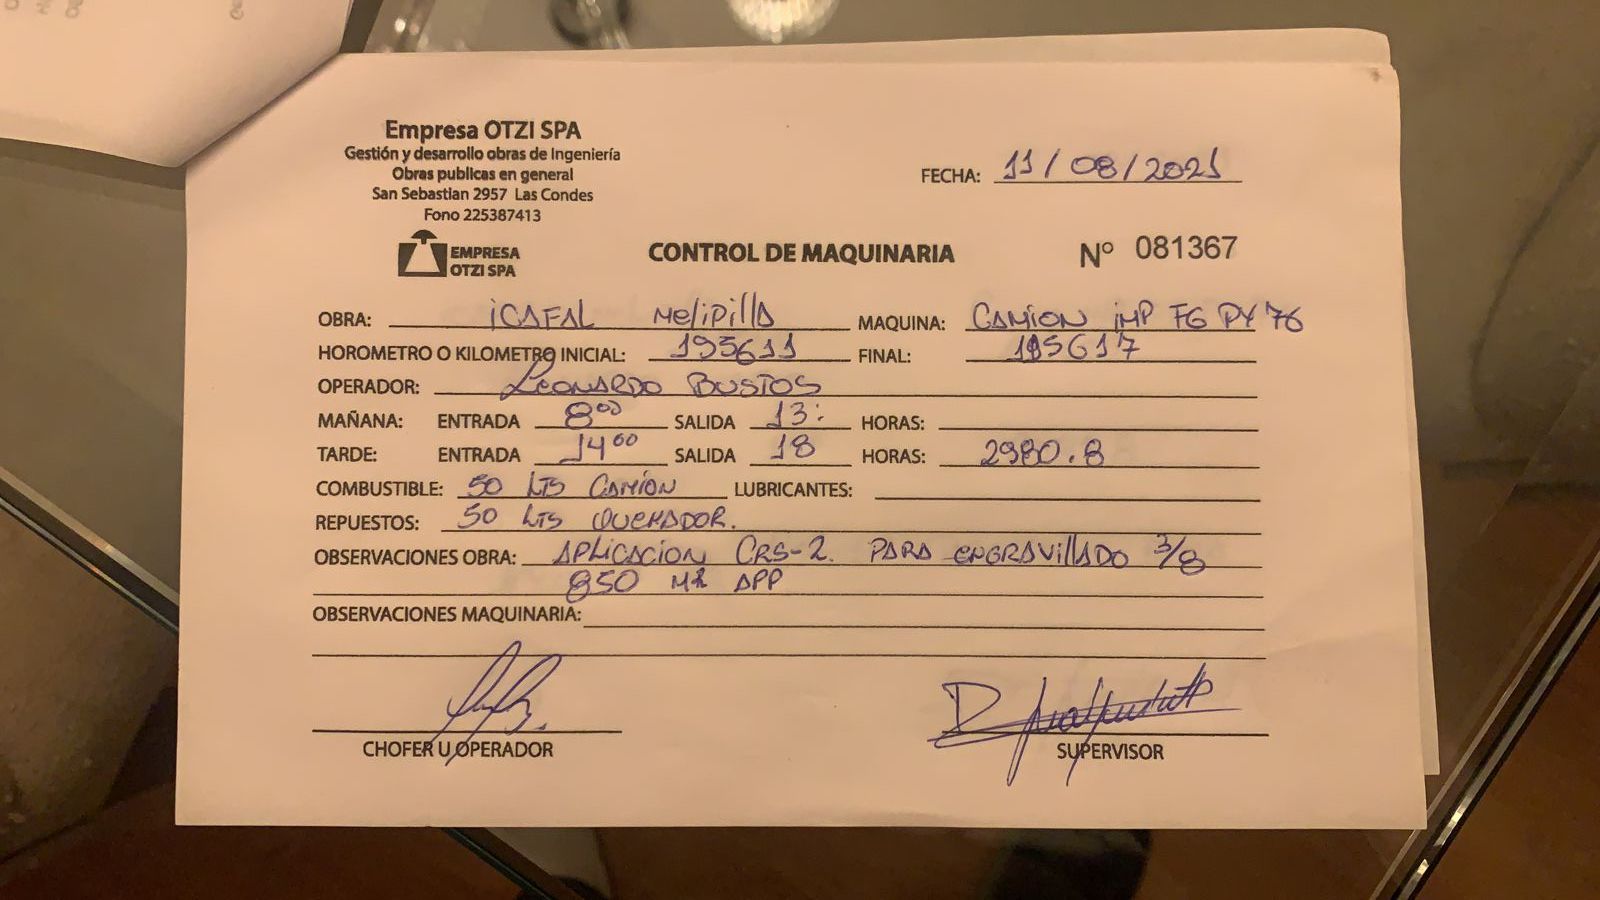 Empresa OTZI SPA
Gestión y desarrollo obras de Ingeniería
Obras publicas en general
San Sebastian 2957 Las Condes
Fono 225387413
FECHA: 11/08/2021
EMPRESA
OTZI SPA
CONTROL DE MAQUINARIA
Nº 081367
OBRA: iCAFAL MelipillA MAQUINA: CAMION iMP FG PY 76
HOROMETRO O KILOMETRO INICIAL: 195611 FINAL: 195617
OPERADOR: LEONARDO BUSTOS
MAÑANA: ENTRADA 8⁰⁰ SALIDA 13: HORAS:
TARDE: ENTRADA 14⁰⁰ SALIDA 18 HORAS: 2980.8
COMBUSTIBLE: 50 LTS CAMIÓN LUBRICANTES:
REPUESTOS: 50 LTS QUEMADOR.
OBSERVACIONES OBRA: APLICACION CRS-2. PARA ENGRAVILLADO 3/8
850 APP
OBSERVACIONES MAQUINARIA:
CHOFER U OPERADOR
SUPERVISOR